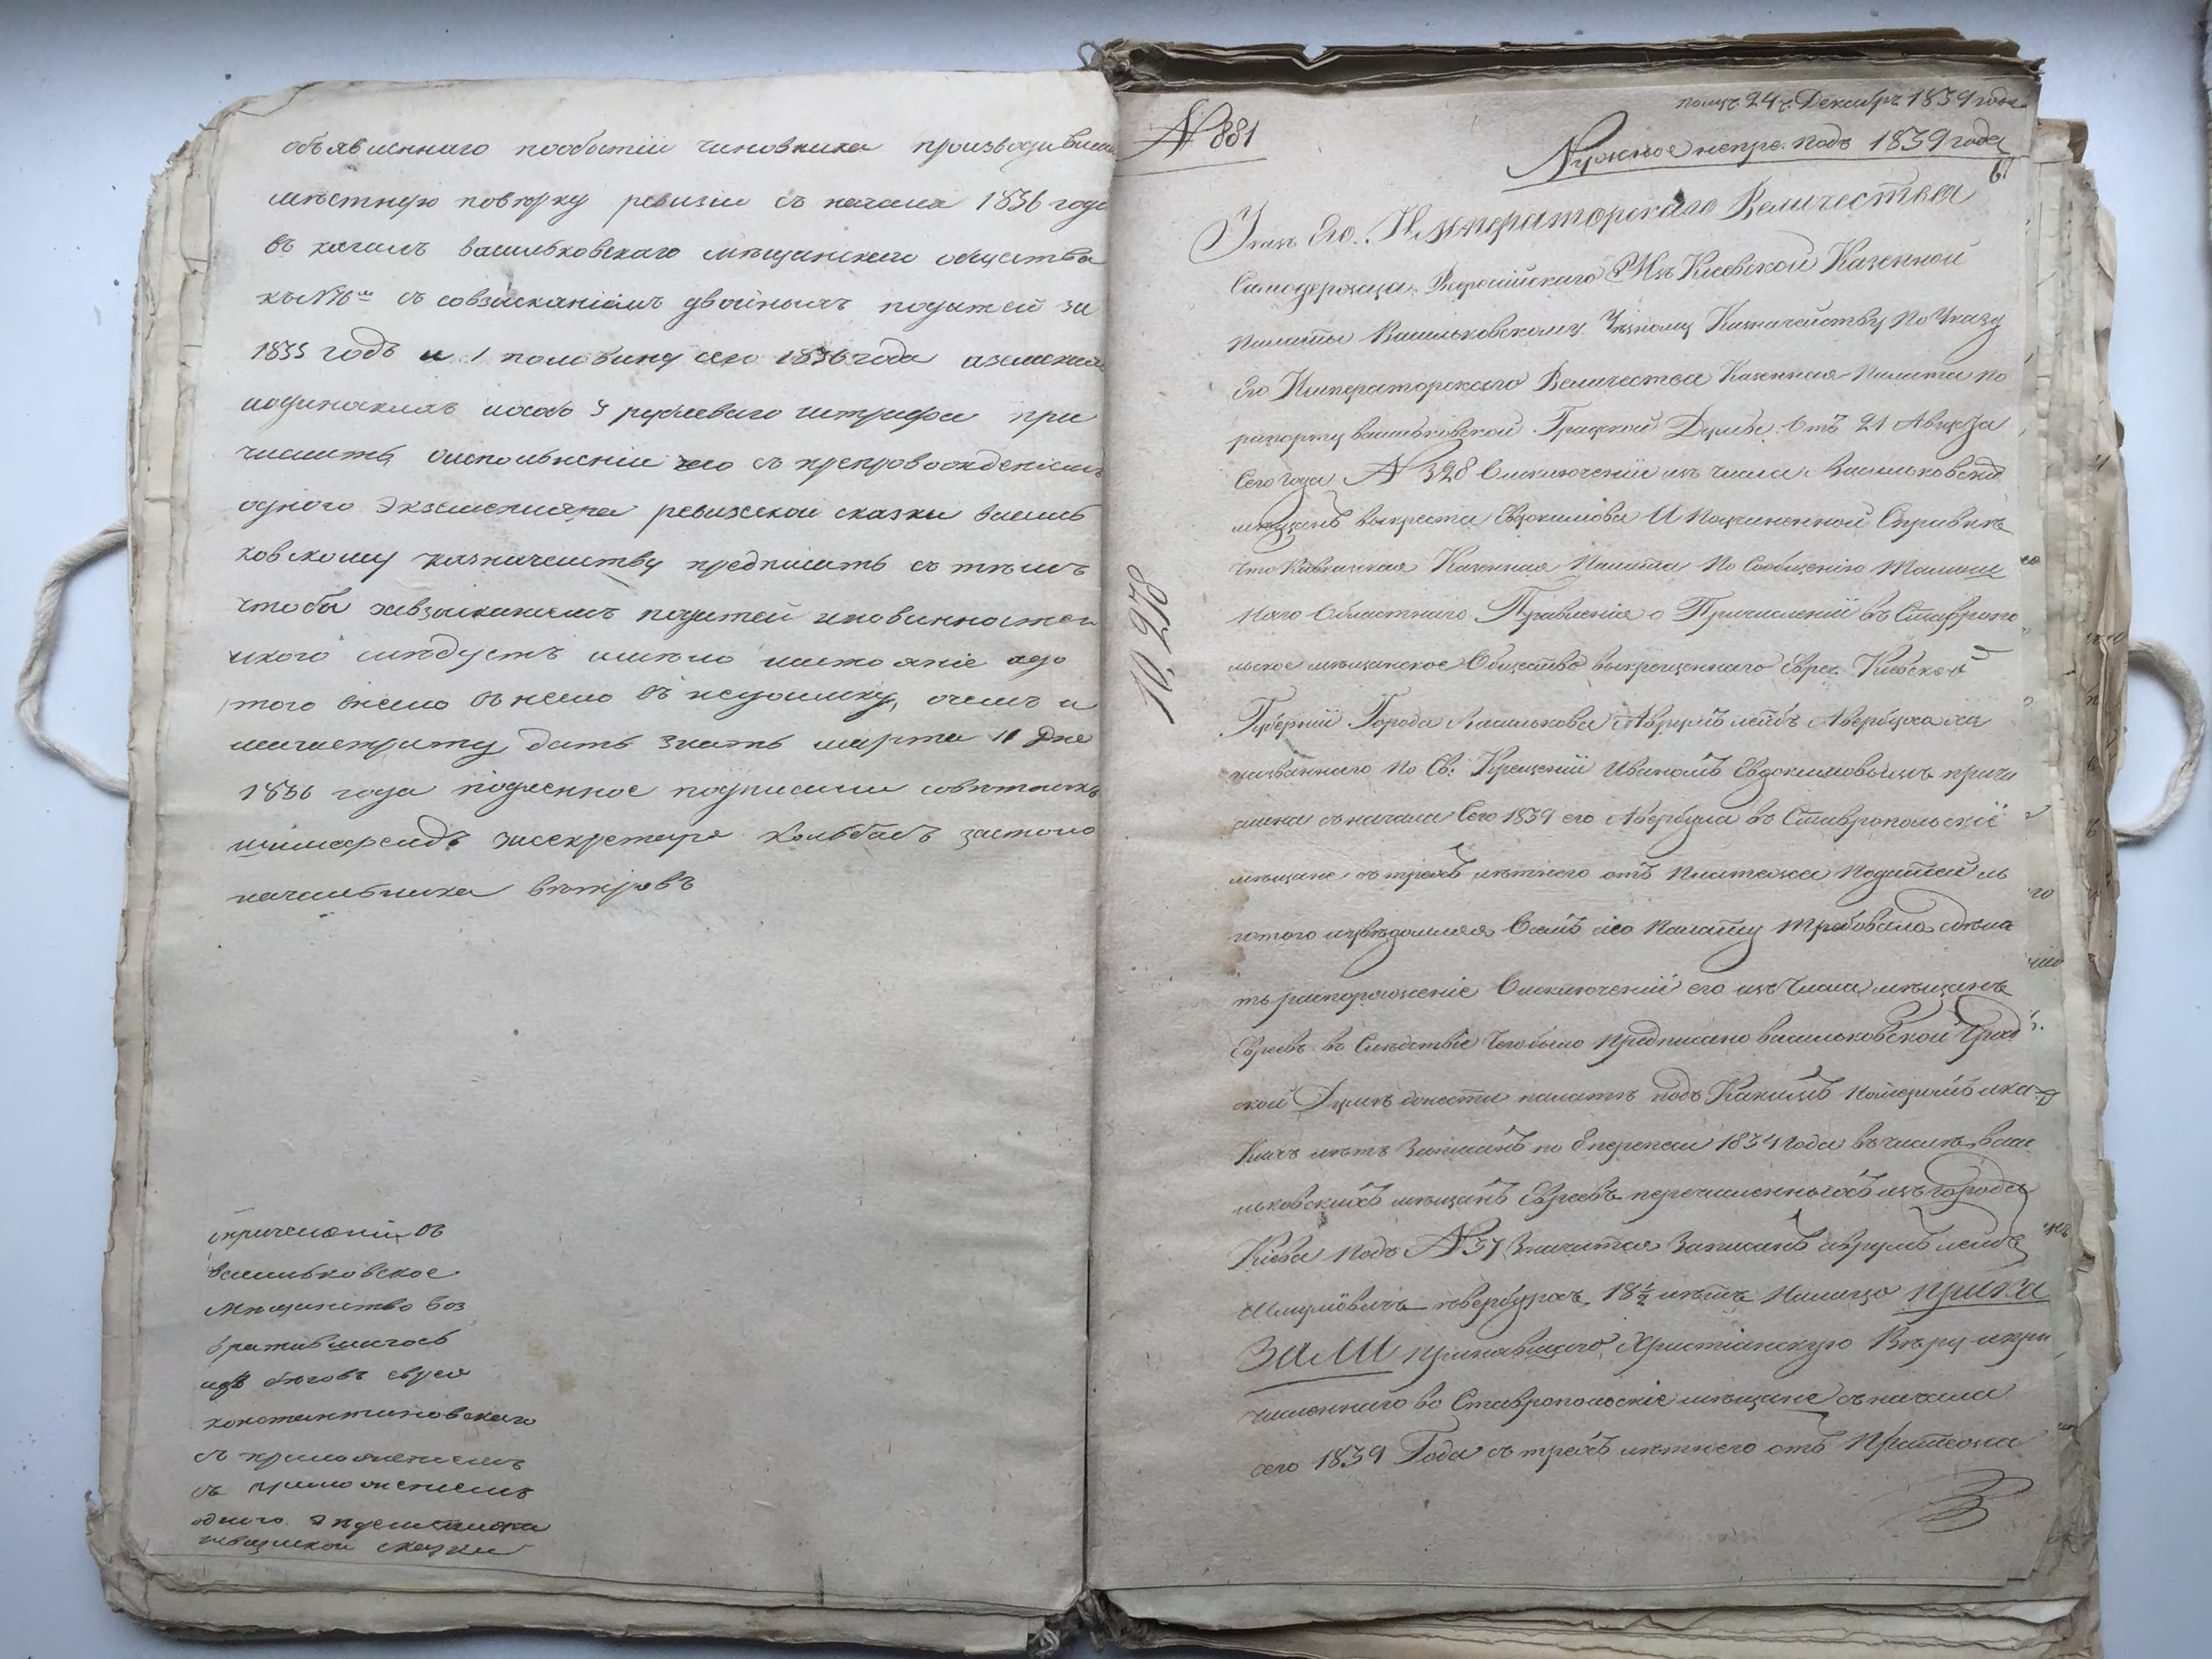 объявленнаго пообытіи чиновника производившаго
мѣстную повѣрку ревизіи съ начала 1836 года
въ кагалъ васильковскаго мѣщанскаго общества
къ № 76 съ совзысканіемъ двойныхъ податей за
1835 годъ и 1 половину сего 1836 года
рублеваго штрафа при
числить оисполненіи чего съ препровожденіемъ
одного экземпляра ревизской сказки василь
ковскому казначейству предписать съ тѣмъ
чтобы завзысканіемъ податей иповинностей
икого слѣдуетъ имѣло настояніе адо
того внего въ недоимку, очемъ и
магистрату дать знать марта 11 дня
1836 года подленное подписали совѣтникъ
засекретаря Колбасъ застоло
начальника вѣтровъ
опричисленіи въ
васильковское
мѣщанство воз
вратившагося
изъ бѣговъ еврея
константиновскаго
съ приложеніемъ
съ приложеніемъ
одного экземпляра
ревизской сказки
№ 881
получ. 24 г. Декабря 1839 года
Нужное непре. подъ 1839 года
67
Указъ Его Императорскаго Величества
Самодержца Всероссійскаго Изъ Кіевской Казенной
Палаты Васильковскому Уѣздному Казначейству По Указу
Его Императорскаго Величества Казенная Палата по
рапорту васильковской Градской Думы Отъ 21 Августа
Сего года № 328 Оисключеніи изъ числа Васильковскихъ
мѣщанъ выкреста Евдокимова И Поучиненной Справкѣ
Что Кавказская Казенная Палата По Сообщенію Тамош
няго Областнаго Правленія о Причисленіи въ Ставропо
льское мѣщанское Общество выкрещеннаго Еврея Кіевской
Губерніи Города Василькова Аврумъ лейбъ Авербуха
названнаго по Св: Крещеніи Иваномъ Евдокимовымъ причи
слила съначала Сего 1839 его Авербуха въ Ставропольскіе
мѣщане съ трехъ лѣтнего отъ Платежа Податей ль
готого Осемъ сію Палату требовала сдѣла
ть распоряженіе Оисключеніи его изъ Числа мѣщанъ
Евреевъ во Слѣдствіе Чего было Предписано васильковской Град
ской Думѣ донести палатѣ подъ Какимъ Номеромъ ика
кихъ лѣтъ Записанъ по 8 переписи 1834 года въчислѣ васи
льковскихъ мѣщанъ Евреевъ перечисленныхъ изъ города
Кіева Подъ № 37 Значится Записанъ аврумъ лейбъ
Шмулйовичъ Авербухъ 18½ лѣтъ Палата Прика
ЗАЛИ принявшаго Христіанскую Вѣру ипри
численнаго во Ставропольскіе мѣщане съначала
сего 1839 Года съ трехъ лѣтнего отъ Платежа
10,278